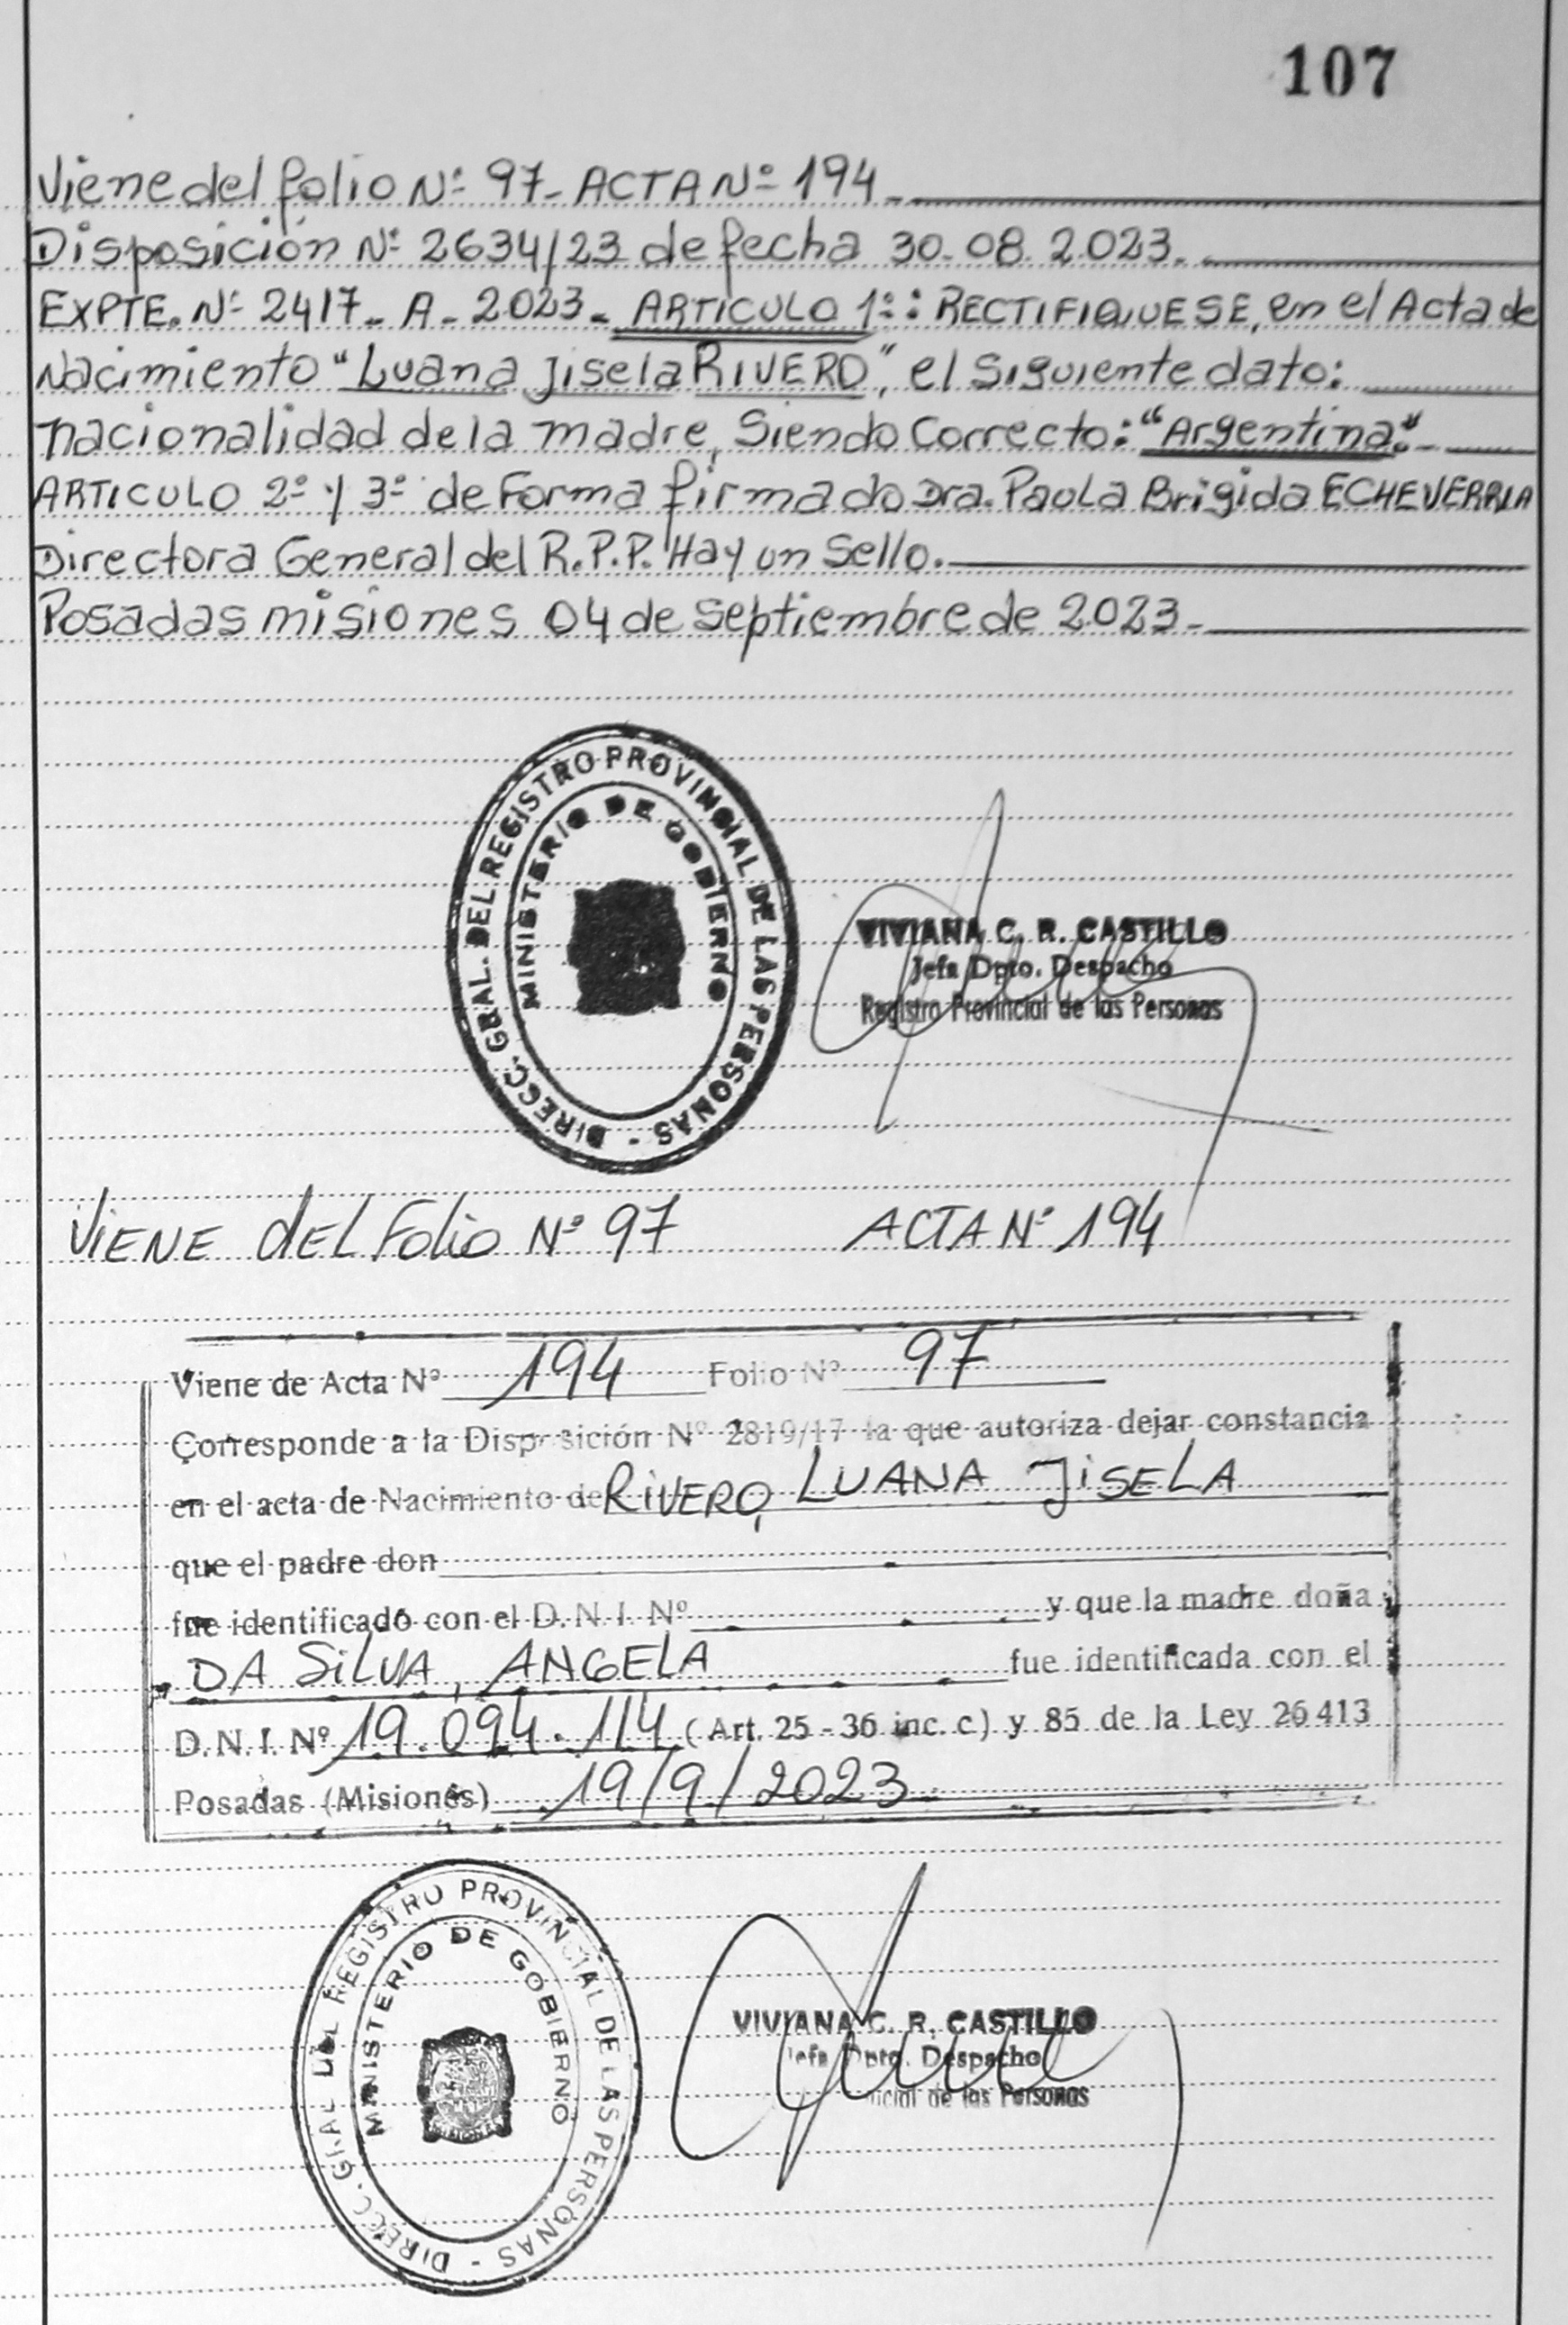 107
Viene del folio Nº 97 - ACTA Nº 194 -
Disposición Nº 2634/23 de fecha 30-08-2023.-
EXPTE. Nº 2417 - A - 2023 - ARTICULO 1º: RECTIFIQUESE, en el Acta de
Nacimiento "Luana Jisela RIVERO", el Siguiente dato:
nacionalidad de la madre, Siendo Correcto: "Argentina".-
ARTICULO 2º y 3º de Forma firmado Dra. Paola Brigida ECHEVERRIA
Directora General del R.P.P. Hay un Sello.
Posadas misiones 04 de Septiembre de 2023.-
DIRECC. GRAL. DEL REGISTRO PROVINCIAL DE LAS PERSONAS -
MINISTERIO DE GOBIERNO
VIVIANA C. R. CASTILLO
Jefa Dpto. Despacho
Registro Provincial de las Personas
VIENE DEL Folio Nº 97 ACTA Nº 194
Viene de Acta Nº 194 Folio Nº 97
Corresponde a la Disposición Nº 2819/17 la que autoriza dejar constancia
en el acta de Nacimiento de RIVERO, LUANA JISELA
que el padre don
fue identificado con el D.N.I. Nº y que la madre doña
DA SILVA, ANGELA fue identificada con el
D.N.I. Nº 19.094.114 (Art. 25 - 36 inc. c) y 85 de la Ley 26413
Posadas (Misiones) 19/9/2023
DIRECC. GRAL DEL REGISTRO PROVINCIAL DE LAS PERSONAS -
MINISTERIO DE GOBIERNO
VIVIANA C. R. CASTILLO
Jefa Dpto. Despacho
de las Personas